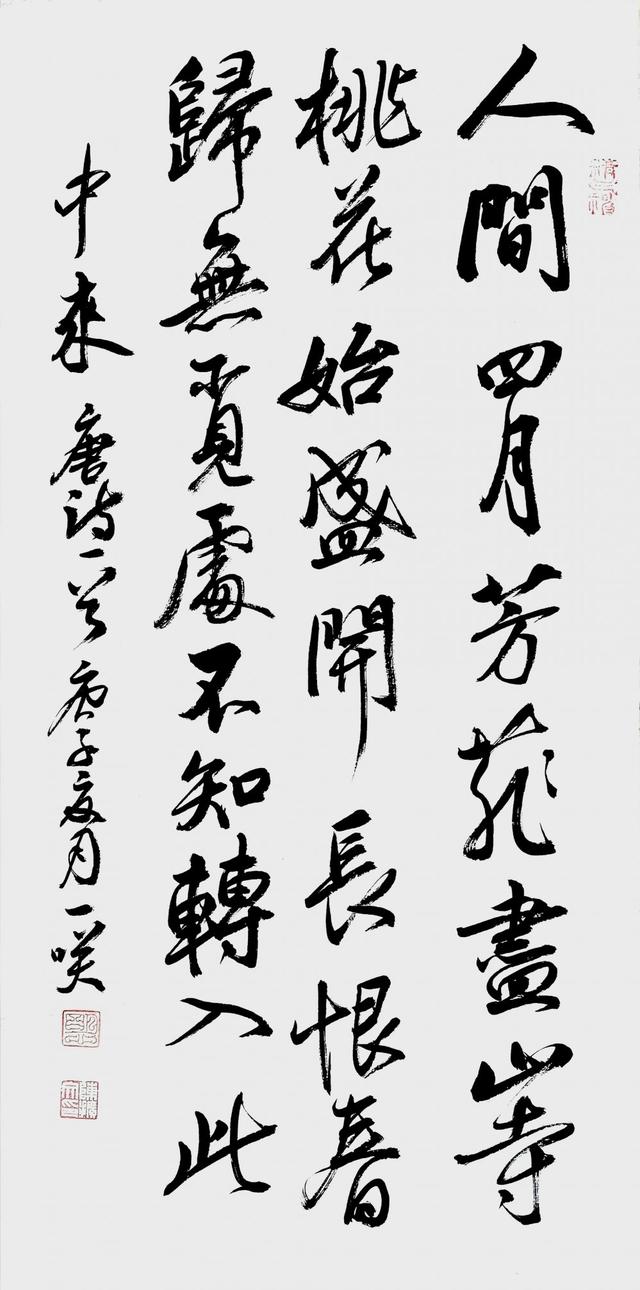 人間四月芳菲盡山寺
桃花始盛開長恨春
歸無覓處不知轉入此
中來 唐詩一首 庚子夏月 一咲